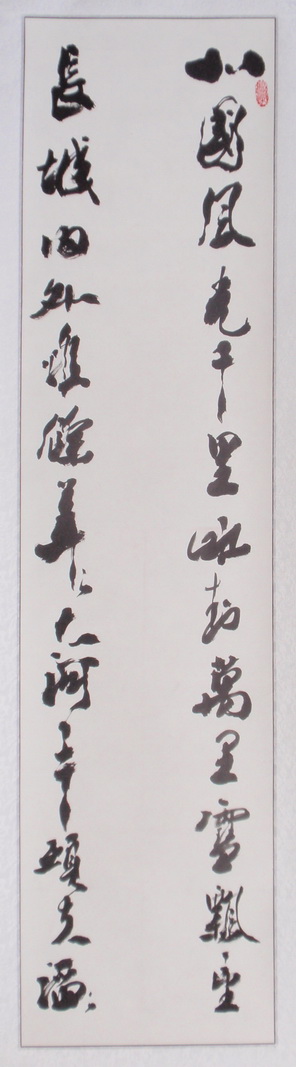 北國風光千里冰封萬里雪飄望
長城內外惟餘莽莽大河上下頓失滔滔